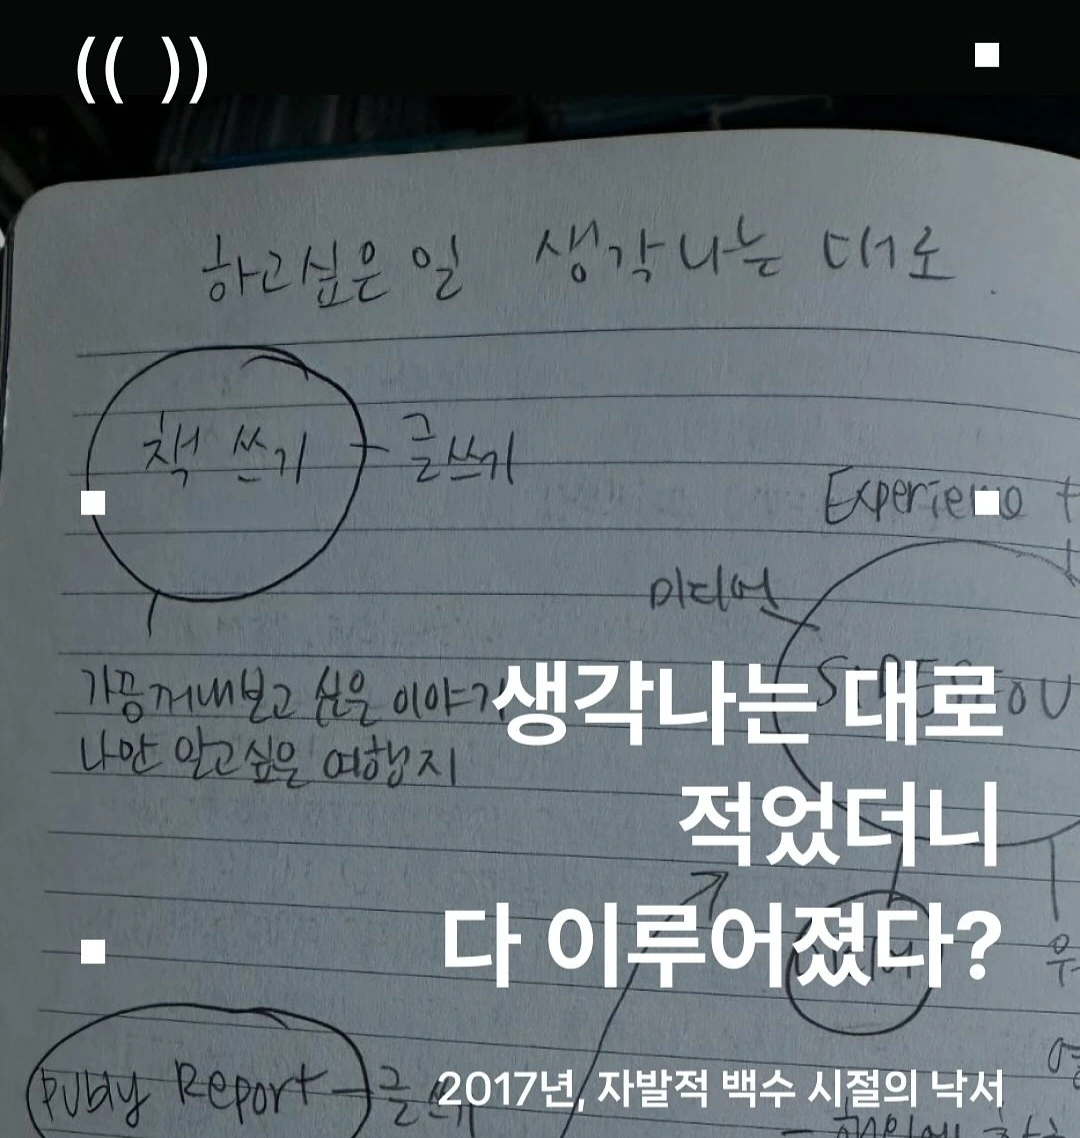 (( ))
하고싶은 일 생각나는 대로.
책 쓰기 - 글쓰기
Experience +
미디엄
가끔 꺼내보고 싶은 이야기
나만 알고싶은 여행지
생각나는 대로
적었더니
다 이루어졌다?
Publy Report - 글쓰기
2017년, 자발적 백수 시절의 낙서